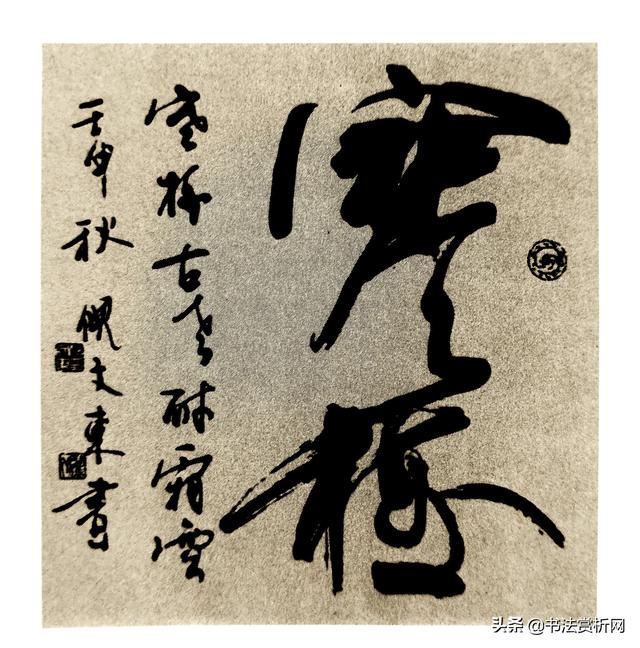 寒梅
寒梅古耐霜雪
壬申秋 倪文東書
头条 @书法赏析网